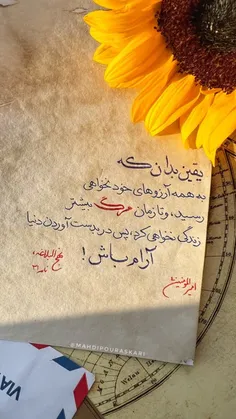 یقین بدان که
به همه آرزوهای خود نخواهی
رسید، و تا زمان مرگ بیشتر
زندگی نخواهی کرد، پس در بدست آوردن دنیا
آرام باش!
نهج البلاغه،
نامه ۳۱
امیرالمومنین
@MAHDIPOURASKARI
VIA